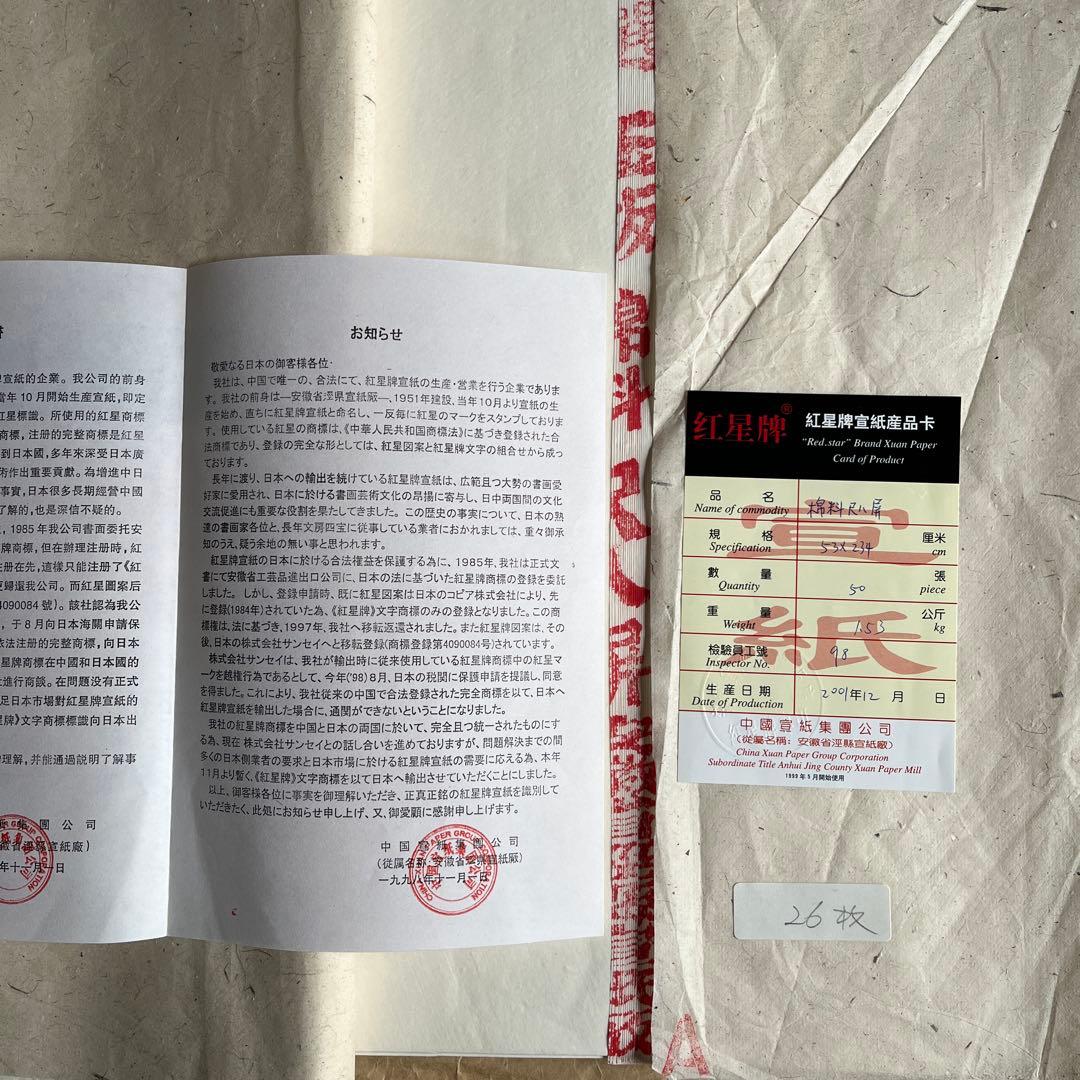 牌宣紙的企業。我公司的前身
當年10月開始生産宣紙,即定
紅星標識。所使用的紅星商標
商標,注册的完整商標是紅星
到日本國,多年來深受日本廣
術作出重要貢獻。為增進中日
事實,日本很多長期經營中國
了解的,也是深信不疑的。
,1985年我公司書面委托安
牌商標,但在辦理注册時,紅
注册在先,這樣只能注册了《紅
更歸還我公司。而紅星圖案后
4090084號)。該社認為我公
,于8月向日本海關申請保
依法注册的完整商標,向日本
星牌商標在中國和日本國的
社進行商談。在問題没有正式
足日本市場對紅星牌宣紙的
牌》文字商標標識向日本出
理解,并能通過説明了解事
集團公司
徽省涇縣宣紙廠)
年十一月一日
お知らせ
敬愛なる日本の御客様各位·
我社は、中国で唯一の、合法にて、紅星牌宣紙の生産·営業を行う企業でありま
す。我社の前身は—安徽省涇県宣紙厰—、1951年建設、当年10月より宣紙の生
産を始め、直ちに紅星牌宣紙と命名し、一反毎に紅星のマークをスタンプしておりま
す。使用している紅星の商標は、《中華人民共和国商標法》に基づき登録された合
法商標であり、登録の完全な形としては、紅星図案と紅星牌文字の組合せから成っ
ております。
長年に渡り、日本への輸出を続けている紅星牌宣紙は、広範且つ大勢の書画愛
好家に愛用され、日本に於ける書画芸術文化の昂揚に寄与し、日中両国間の文化
交流促進にも重要な役割を果たしてきました。この歴史の事実について、日本の熟
達の書画家各位と、長年文房四宝に従事している業者におかれましては、重々御承
知のうえ、疑う余地の無い事と思われます。
紅星牌宣紙の日本に於ける合法権益を保護する為に、1985年、我社は正式文
書にて安徽省工芸品進出口公司に、日本の法に基づいた紅星牌商標の登録を委託
しました。しかし、登録申請時、既に紅星図案は日本のコピア株式会社により、先
に登録(1984年)されていた為、《紅星牌》文字商標のみの登録となりました。この商
標権は、法に基き、1997年、我社へ移転返還されました。また紅星牌図案は、その
後、日本の株式会社サンセイへと移転登録(商標登録第4090084号)されています。
株式会社サンセイは、我社が輸出時に従来使用している紅星牌商標中の紅星マ
ークを越権行為であるとして、今年('98)8月、日本の税関に保護申請を提議し、同意
を得ました。これにより、我社従来の中国で合法登録された完全商標を以て、日本へ
紅星牌宣紙を輸出した場合に、通関ができないということになりました。
我社の紅星牌商標を中国と日本の両国に於いて、完全且つ統一されたものにす
る為、現在 株式会社サンセイとの話し合いを進めておりますが、問題解決までの間
多くの日本側業者の要求と日本市場に於ける紅星牌宣紙の需要に応える為、本年
11月より暫く、《紅星牌》文字商標を以て日本へ輸出させていただくことにしました。
以上、御客様各位に事実を御理解いただき、正真正銘の紅星牌宣紙を識別して
いただきたく、此処にお知らせ申し上げ、又、御愛顧に感謝申し上げます。
中国宣紙集団公司
(従属名称 安徽省涇県宣紙厰)
一九九八年十一月一日
料 尺八屏
红星牌®
紅星牌宣紙産品卡
"Red.star" Brand Xuan Paper
Card of Product
品 名 棉料尺八屏
Name of commodity
規 格 53×234 厘米
Specification cm
數 量 50 張
Quantity piece
重 量 1.53 公斤
Weight kg
檢驗員工號 98
Inspector No.
生産日期 2001年12月 日
Date of Production
宣紙
中國宣紙集團公司
(從屬名稱: 安徽省涇縣宣紙廠)
China Xuan Paper Group Corporation
Subordinate Title Anhui Jing County Xuan Paper Mill
1999年5月開始使用
26枚
A